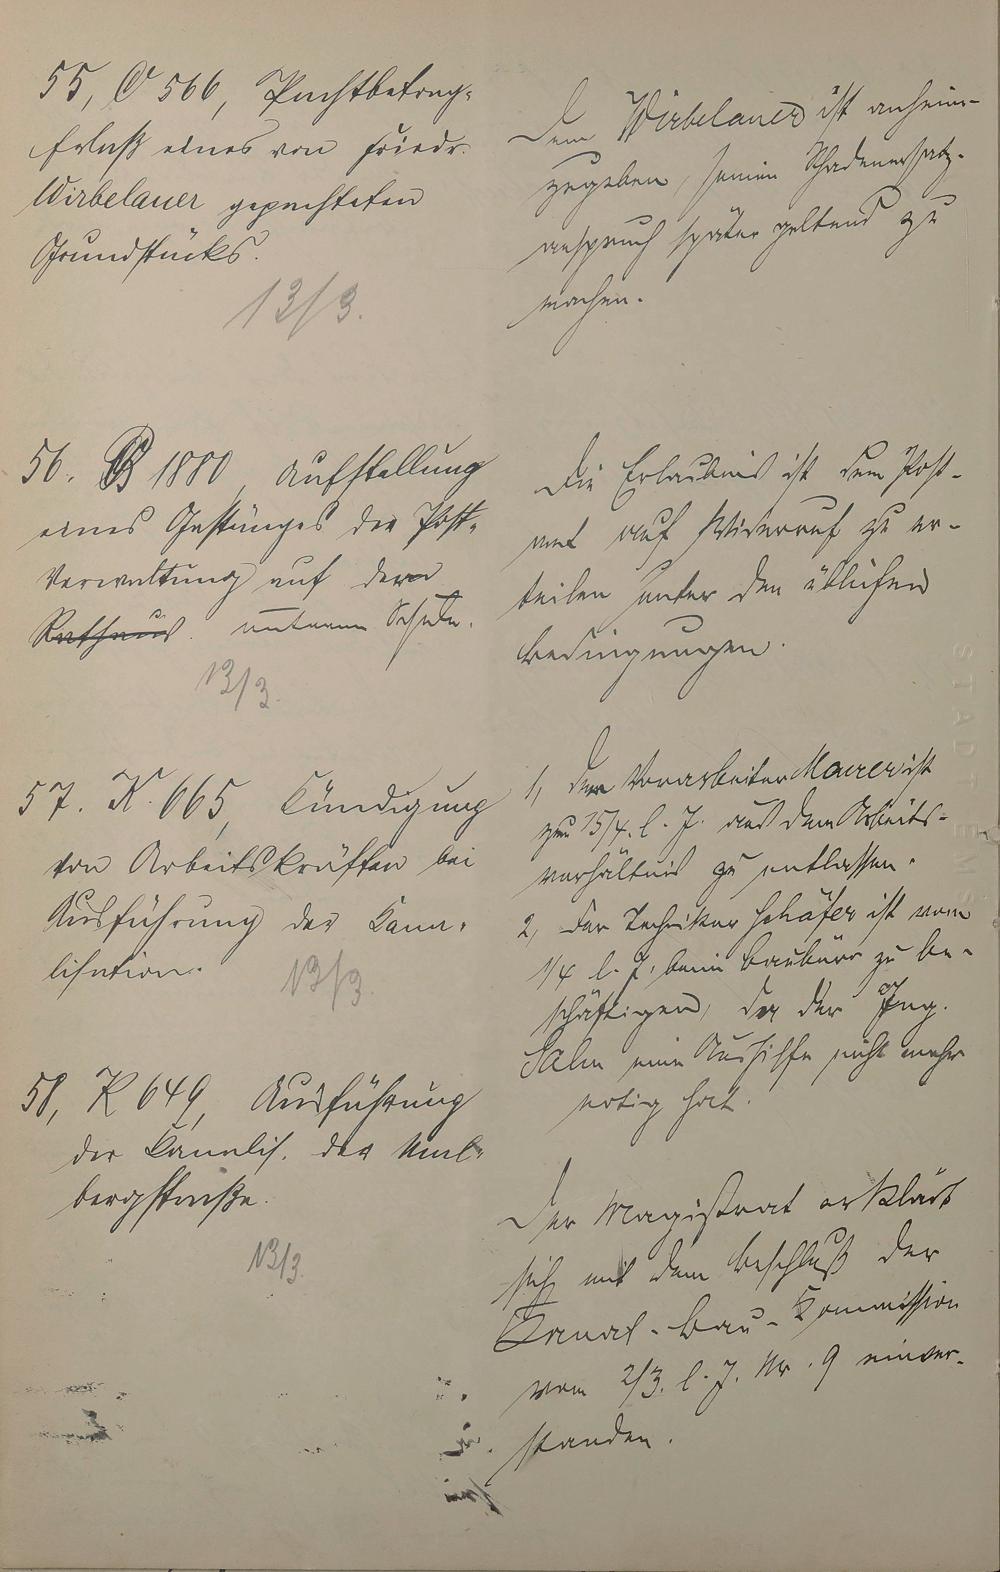 55, O 566, Pachtbetrag-
Erlaß eines von Friedr.
Wirbelauer gepachteten
Grundstücks.
13/3.
Dem Wirbelauer ist anheim-
zugeben, seinen Schadenersatz-
anspruch später geltend zu
machen.
56. B 1880, Aufstellung
eines Gestänges der Post-
Verwaltung auf der
Rathaus. unteren Schule.
13/3.
Die Erlaubnis ist dem Post-
amt auf Widerruf zu er-
teilen unter den üblichen
Bedingungen.
57. K. 665, Kündigung
von Arbeitskräften bei
Ausführung der Kana-
lisation.
13/3.
1, Der Vorarbeiter Maurer ist
zum 15/4. l. J. aus dem Arbeits-
verhältnis zu entlassen.
2, Der Techniker Schäfer ist vom
1/4 l. J. beim Baubüro zu be-
schäftigen, da der Ing.
Salm eine Aushilfe nicht mehr
nötig hat.
58, K 649, Ausführung
der Kanalis. der
bergstraße.
13/3
Der Magistrat erklärt
sich mit dem Beschluß der
Kanal-Bau-Kommission
vom 2/3. l. J. Nr. 9 einver-
standen.
STADT EMS